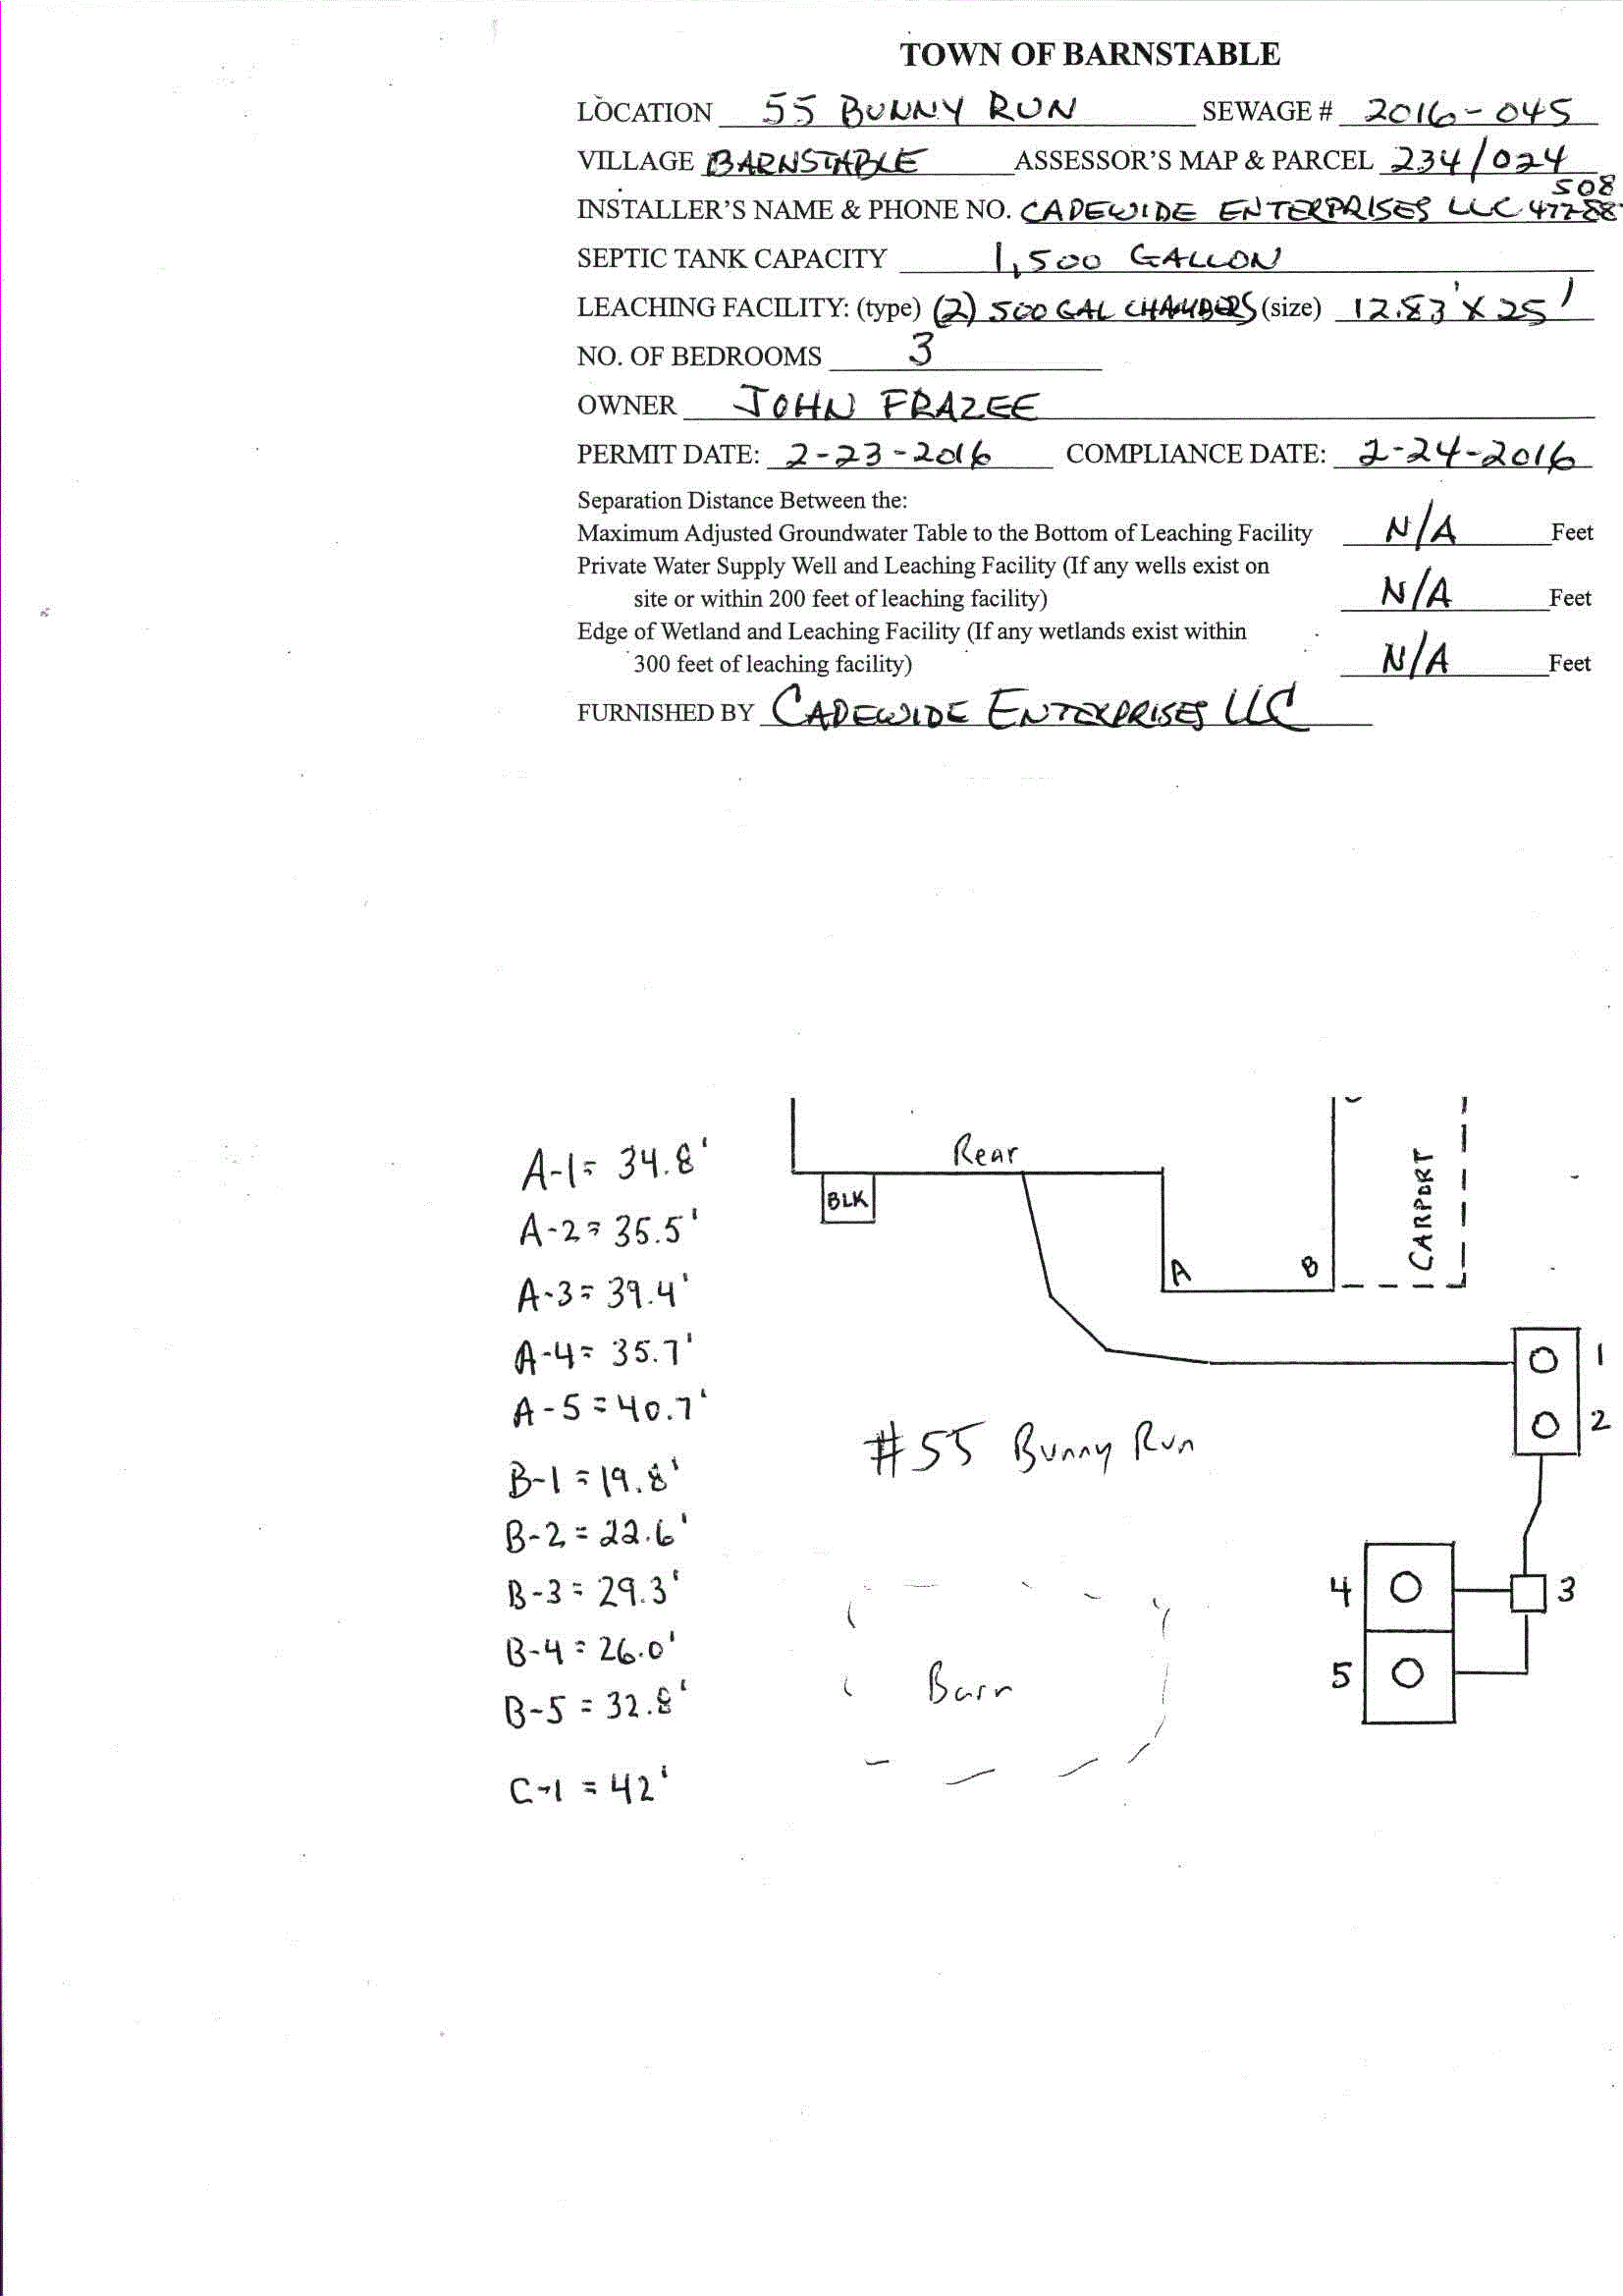 TOWN OF BARNSTABLE
LOCATION 55 BUNNY RUN SEWAGE # 2016-045
VILLAGE BARNSTABLE ASSESSOR'S MAP & PARCEL 234/024
508
INSTALLER'S NAME & PHONE NO. CAPEWIDE ENTERPRISES LLC 477-88
SEPTIC TANK CAPACITY 1,500 GALLON
LEACHING FACILITY: (type) (2) 500 GAL CHAMBERS (size) 12.83' X 25'
NO. OF BEDROOMS 3
OWNER JOHN FRAZEE
PERMIT DATE: 2-23-2016 COMPLIANCE DATE: 2-24-2016
Separation Distance Between the:
Maximum Adjusted Groundwater Table to the Bottom of Leaching Facility N/A Feet
Private Water Supply Well and Leaching Facility (If any wells exist on
site or within 200 feet of leaching facility) N/A Feet
Edge of Wetland and Leaching Facility (If any wetlands exist within
300 feet of leaching facility) N/A Feet
FURNISHED BY CAPEWIDE ENTERPRISES LLC
A-1= 34.8'
A-2= 35.5'
A-3= 39.4'
A-4= 35.7'
A-5=40.7'
B-1=19.8'
B-2=22.6'
B-3=29.3'
B-4=26.0'
B-5=32.8'
C-1=42'
Rear
BLK
CARPORT
A
B
1
2
#55 Bunny Run
4
3
5
Barn